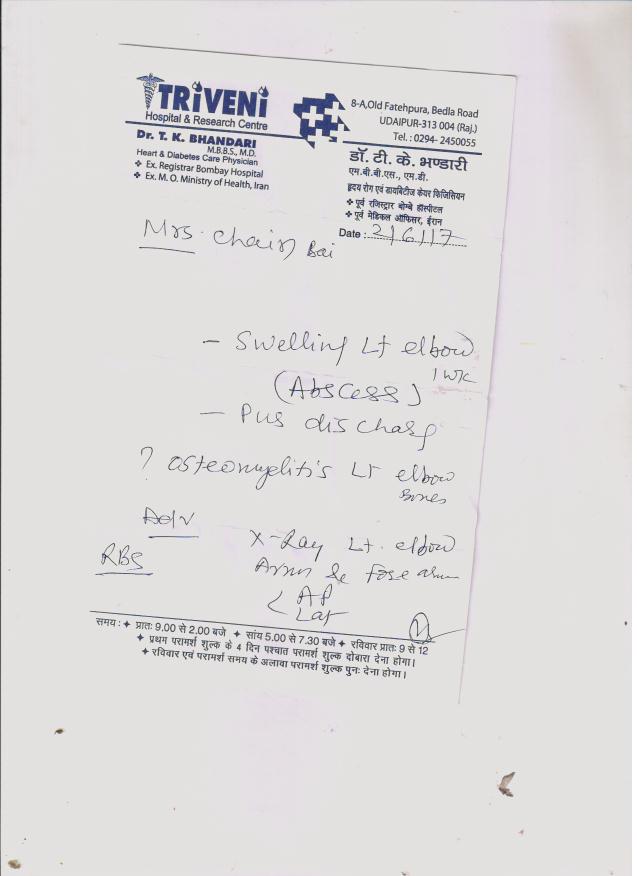 TRIVENI
Hospital & Research Centre
Dr. T. K. BHANDARI
M.B.B.S., M.D.
Heart & Diabetes Care Physician
❖ Ex. Registrar Bombay Hospital
❖ Ex. M. O. Ministry of Health, Iran
8-A,Old Fatehpura, Bedla Road
UDAIPUR-313 004 (Raj.)
Tel. : 0294- 2450055
डॉ. टी. के. भण्डारी
एम.बी.बी.एस., एम.डी.
हृदय रोग एवं डायबिटीज केयर फिजिसियन
❖ पूर्व रजिस्ट्रार बोम्बे हॉस्पीटल
❖ पूर्व मेडिकल ऑफिसर, ईरान
Date : 2/6/17
Mrs. Chain Bai
- Swelling Lt elbow
1 wk
(Abscess)
- Pus discharg
? Osteomyelitis Lt elbow
Bones
Adv
X-Ray Lt. elbow
RBS
Arm & Fore arm
< AP
Lat
समय : ✦ प्रातः 9.00 से 2.00 बजे ✦ सांय 5.00 से 7.30 बजे ✦ रविवार प्रातः 9 से 12
✦ प्रथम परामर्श शुल्क के 4 दिन पश्चात परामर्श शुल्क दोबारा देना होगा।
✦ रविवार एवं परामर्श समय के अलावा परामर्श शुल्क पुनः देना होगा।